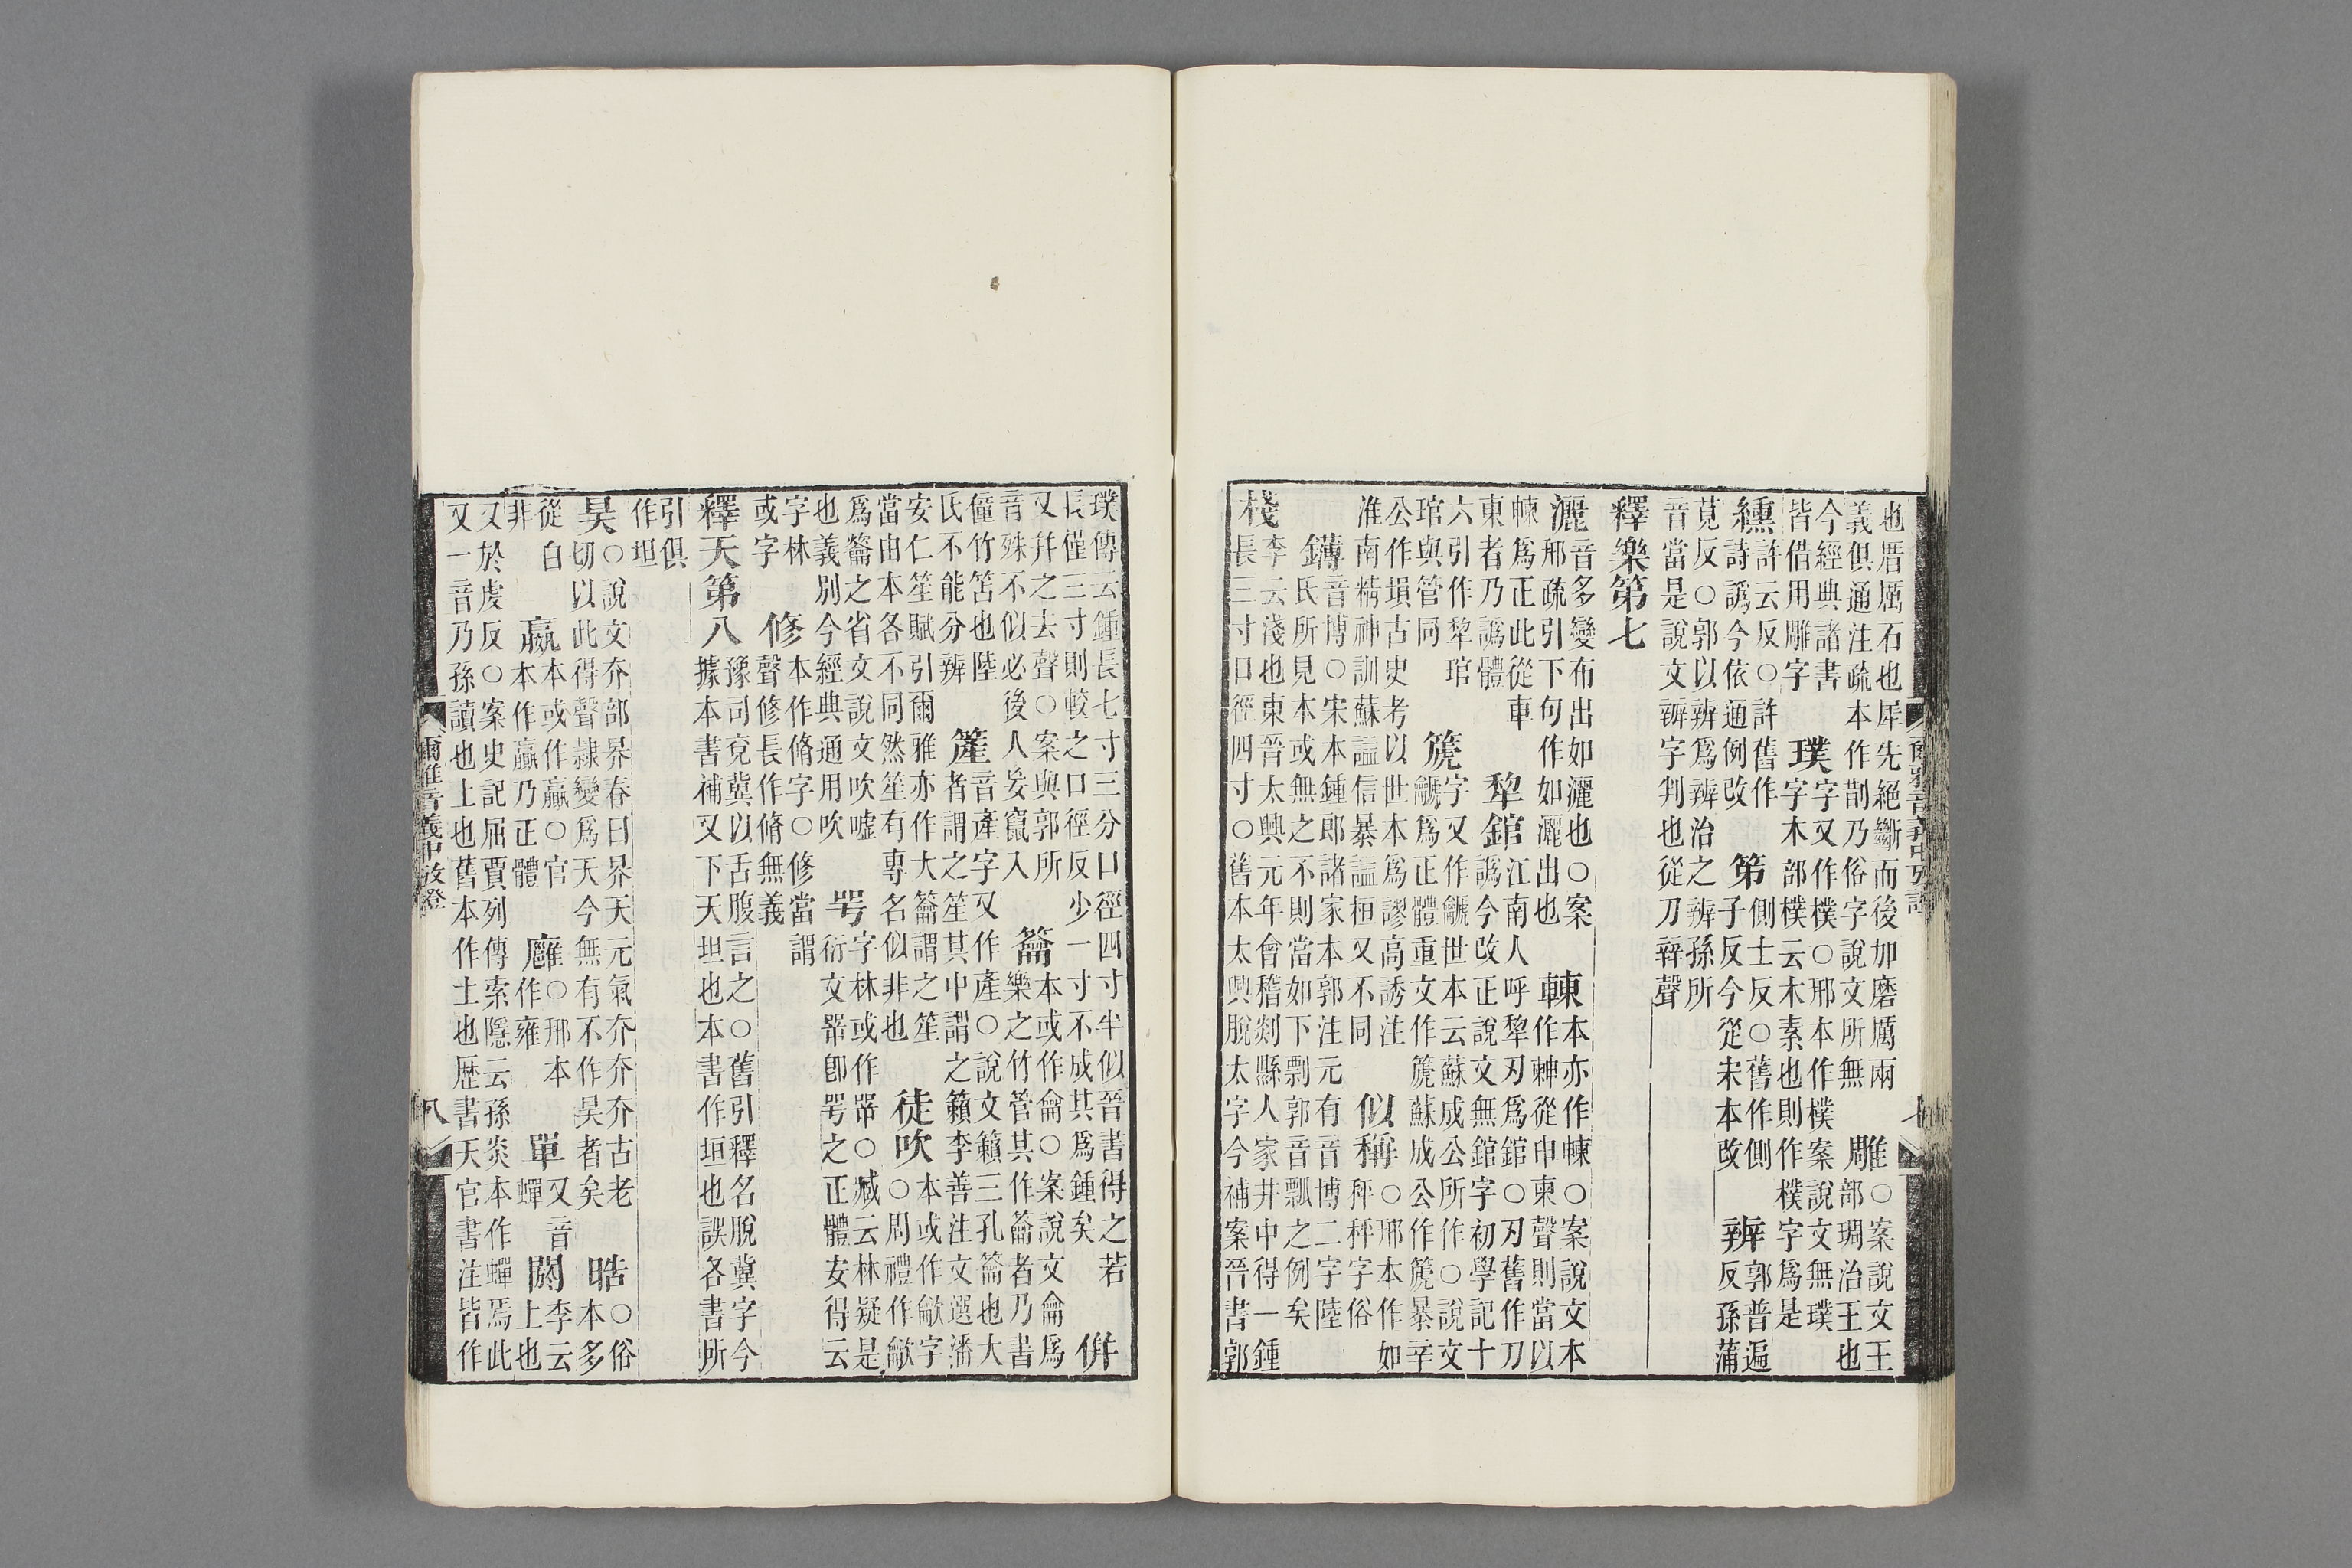 也厝厲石也犀先絕斷而後加磨厲兩
義俱通注疏本作剒乃俗字說文所無
雕
○案說文王
部琱治王也
今經典諸書
皆借用雕字
璞
字又作樸○邢本作樸案說文無璞
字木部樸云木素也則作樸字爲是
纁
許云反○許舊作
詩譌今依通例改
笫
側士反○舊作側
子反今從宋本改
辨
郭普遍
反孫蒲
莧反○郭以辨爲辨治之辨孫所
音當是說文辧字判也從刀辡聲
釋樂第七
灑
音多變布出如灑也○案
邢疏引下句作如灑出也
本亦作㯥○案說文本
作朄從申柬聲則當以
㯥爲正此從車
柬者乃譌體
犂錧
江南人呼犂刃爲錧○刃舊作刀
譌今改正說文無錧字初學記十
六引作犂琯
琯與管同
篪
字又作䶵世本云蘇成公所作○說文
䶵爲正體重文作篪蘇成公作篪暴辛
公作塤古史考以世本爲謬高誘注
淮南精神訓蘇謚信暴謚桓又不同
似稱
○邢本作如
秤秤字俗
鏄
音博○宋本鍾郎諸家本郭注元有音博二字陸
氏所見本或無之不則當如下剽郭音瓢之例矣
棧
李云淺也東晉太興元年會稽剡縣人家井中得一鍾
長三寸口徑四寸○舊本太興脫太字今補案晉書郭
七
璞傳云鍾長七寸三分口徑四寸半似晉書得之若
長僅三寸則較之口徑反少一寸不成其爲鍾矣
併
又幷之去聲○案與郭所
音殊不似必後人妄竄入
籥
本或作龠○案說文龠爲
樂之竹管其作籥者乃書
僮竹笘也陸
氏不能分辨
簅
音產字又作產○說文籟三孔籥也大
者謂之笙其中謂之籟李善注文選潘
安仁笙賦引爾雅亦作大籥謂之笙
當由本各不同然笙有專名似非也
徒吹
本或作龡字
○周禮作龡
爲籥之省文說文吹噓
也義別今經典通用吹
咢
字林或作㗊○臧云林疑是
衍文㗊卽咢之正體安得云
字林
或字
修
本作脩字○修當謂
聲修長作脩無義
釋天第八
豫司兗冀以舌腹言之○舊引釋名脫冀字今
據本書補又下天坦也本書作垣也誤各書所
引俱
作坦
昊
○說文夰部界春曰界天元氣夰夰古老
切以此得聲隸變爲天今無有不作昊者矣
晧
○俗
本多
從白
非
嬴
本或作羸○官
本作嬴乃正體
廱
○邢本
作雍
單
又音
蟬
閼
李云
上也
又於虔反○案史記屈賈列傳索隱云孫炎本作蟬焉此
又一音乃孫讀也上也舊本作士也歷書天官書注皆作
爾雅音義中攷證
八